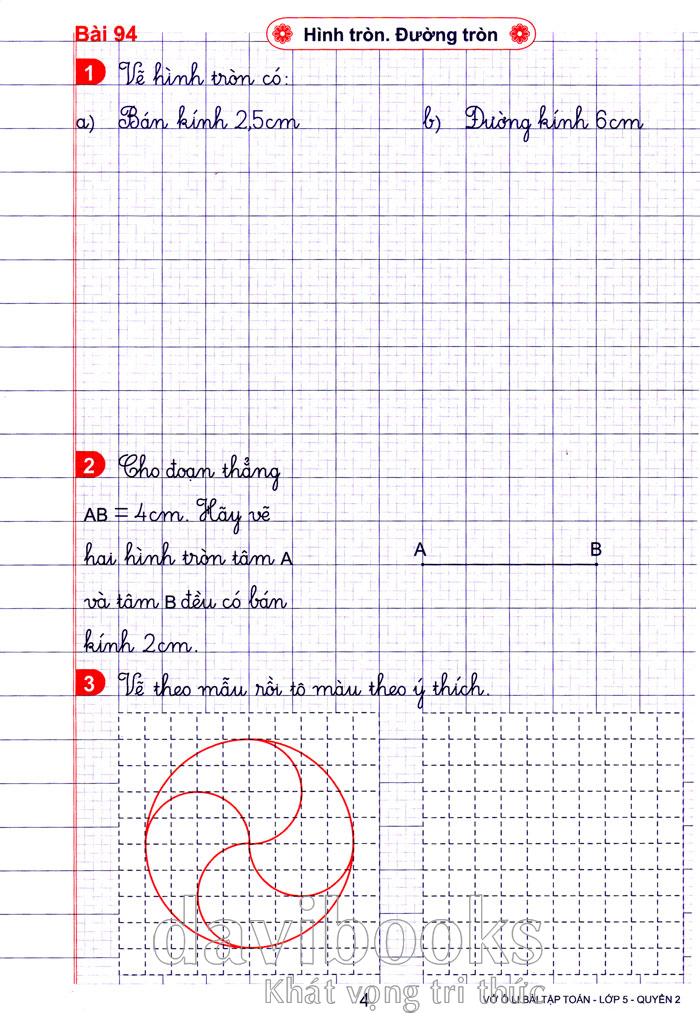 Bài 94
Hình tròn. Đường tròn
1 Vẽ hình tròn có:
a) Bán kính 2,5cm b) Đường kính 6cm
2 Cho đoạn thẳng
AB = 4cm. Hãy vẽ
hai hình tròn tâm A
và tâm B đều có bán
kính 2cm.
A B
3 Vẽ theo mẫu rồi tô màu theo ý thích.
davibooks
Khát vọng tri thức
4 VỞ Ô LI BÀI TẬP TOÁN - LỚP 5 - QUYỂN 2